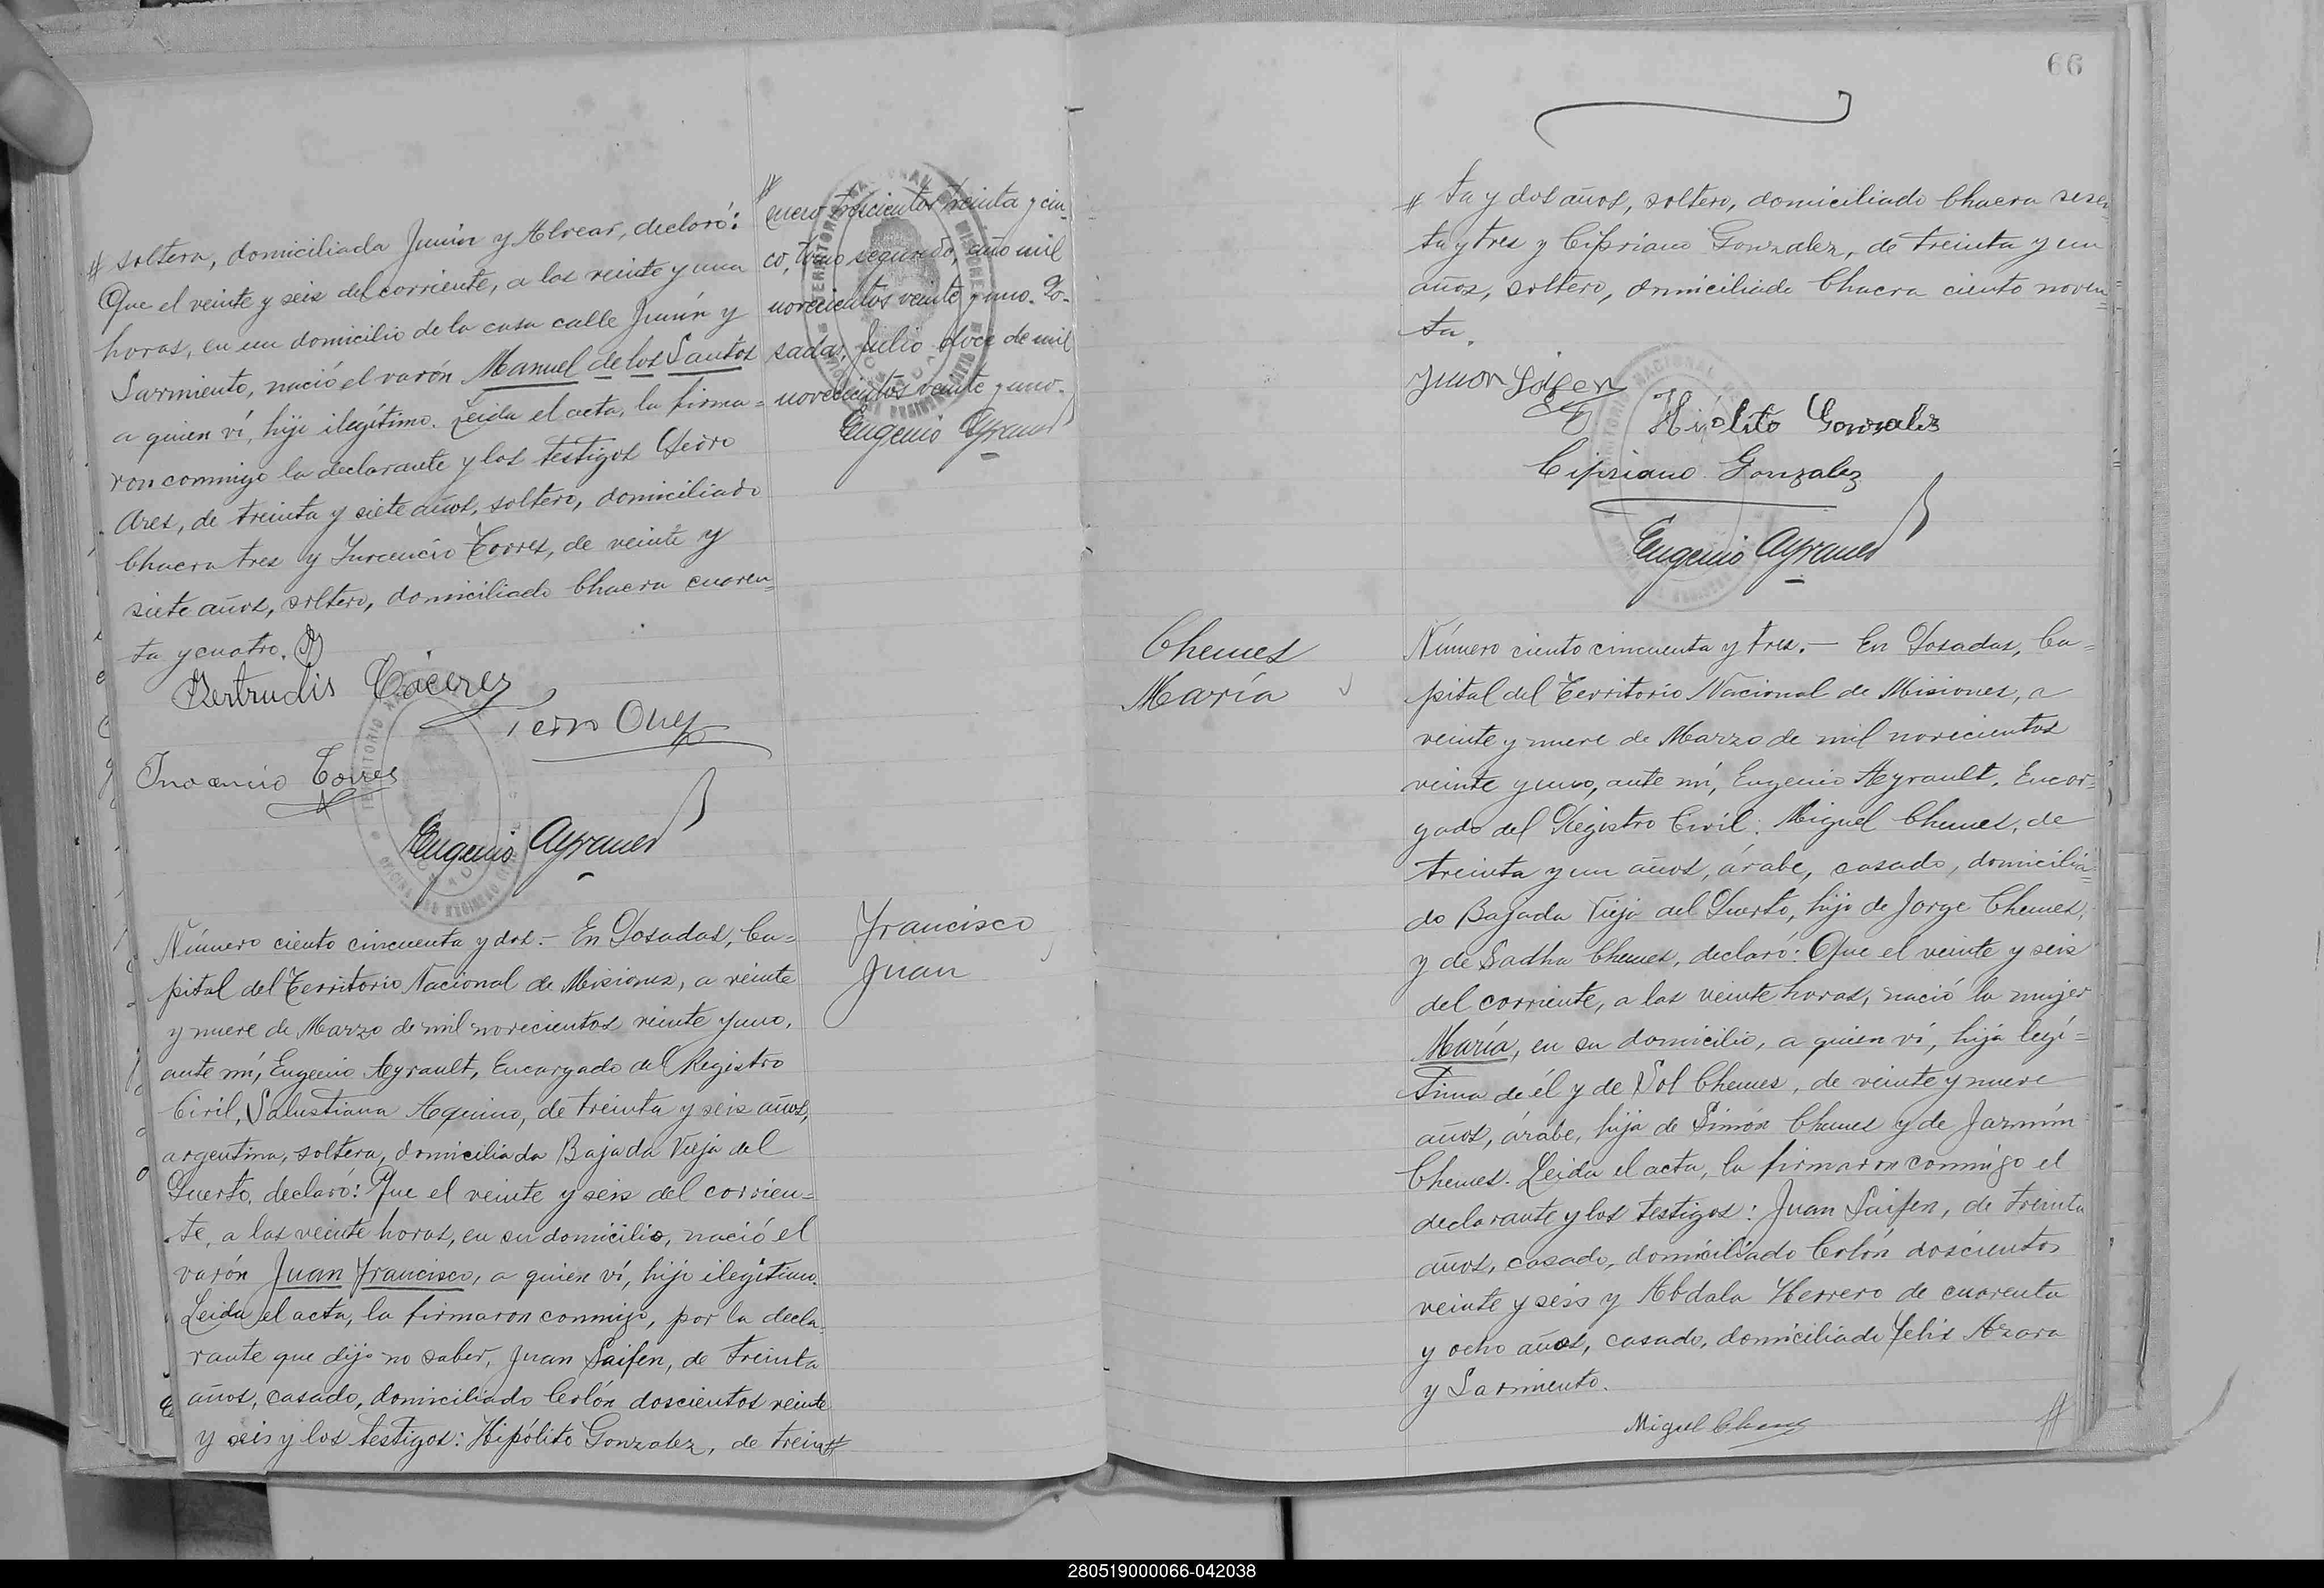 # soltera, domiciliada Junín y Alvear, declaró:
Que el veinte y seis del corriente, a las veinte y una
horas, en un domicilio de la casa calle Junín y
Sarmiento, nació el varón Manuel de los Santos
a quien ví, hijo ilegítimo. Leida el acta, la firma=
ron conmigo la declarante y los testigos Pedro
Ares, de treinta y siete años, soltero, domiciliado
Chacra tres y Inocencio Torres, de veinte y
siete años, soltero, domiciliado Chacra cuaren=
ta y cuatro.
Gertrudis Cáceres
Inocencio Torres
Eugenio Ayrault
#
mero trescientos treinta y cin-
co, tomo segundo, año mil
novecientos veinte y uno. Po-
sadas, Julio doce de mil
novecientos veinte y uno.
Eugenio Ayrault
Francisco
Juan
Número ciento cincuenta y dos.- En Posadas, Ca=
pital del Territorio Nacional de Misiones, a veinte
y nueve de Marzo de mil novecientos veinte y uno,
ante mí, Eugenio Ayrault, Encargado del Registro
Civil, Salustiana Aquino, de treinta y seis años,
argentina, soltera, domiciliada Bajada Vieja del
Puerto, declaró: Que el veinte y seis del corrien=
te, a las veinte horas, en su domicilio, nació el
varón Juan Francisco, a quien ví, hijo ilegítimo.
Leida el acta, la firmaron conmigo, por la decla-
rante que dijo no saber, Juan Saifen, de treinta
años, casado, domiciliado Colón doscientos veinte
y seis y los testigos: Hipólito Gonzalez, de trein #
66
# ta y dos años, soltero, domiciliado Chacra sesen=
ta y tres y Cipriano Gonzalez, de treinta y un
años, soltero, domiciliado Chacra ciento noven=
ta.
Juan Saifen
Hipólito Gonzalez
Cipriano Gonzalez
Eugenio Ayrault
Chemes
María
Número ciento cincuenta y tres.- En Posadas, Ca=
pital del Territorio Nacional de Misiones, a
veinte y nueve de Marzo de mil novecientos
veinte y uno, ante mí, Eugenio Ayrault, Encar=
gado del Registro Civil: Miguel Chemes, de
treinta y un años, árabe, casado, domicilia=
do Bajada Vieja del Puerto, hijo de Jorge Chemes,
y de Sadha Chemes, declaró: Que el veinte y seis
del corriente, a las veinte horas, nació la mujer
María, en su domicilio, a quien ví, hija legí=
tima de él y de Sol Chemes, de veinte y nueve
años, árabe, hija de Simón Chemes y de Jazmín
Chemes. Leida el acta, la firmaron conmigo el
declarante y los testigos: Juan Saifen, de treinta
años, casado, domiciliado Colón doscientos
veinte y seis y Abdala Herrero de cuarenta
y ocho años, casado, domiciliado Felix Azara
y Sarmiento.
Miguel Chemes
#
280519000066-042038